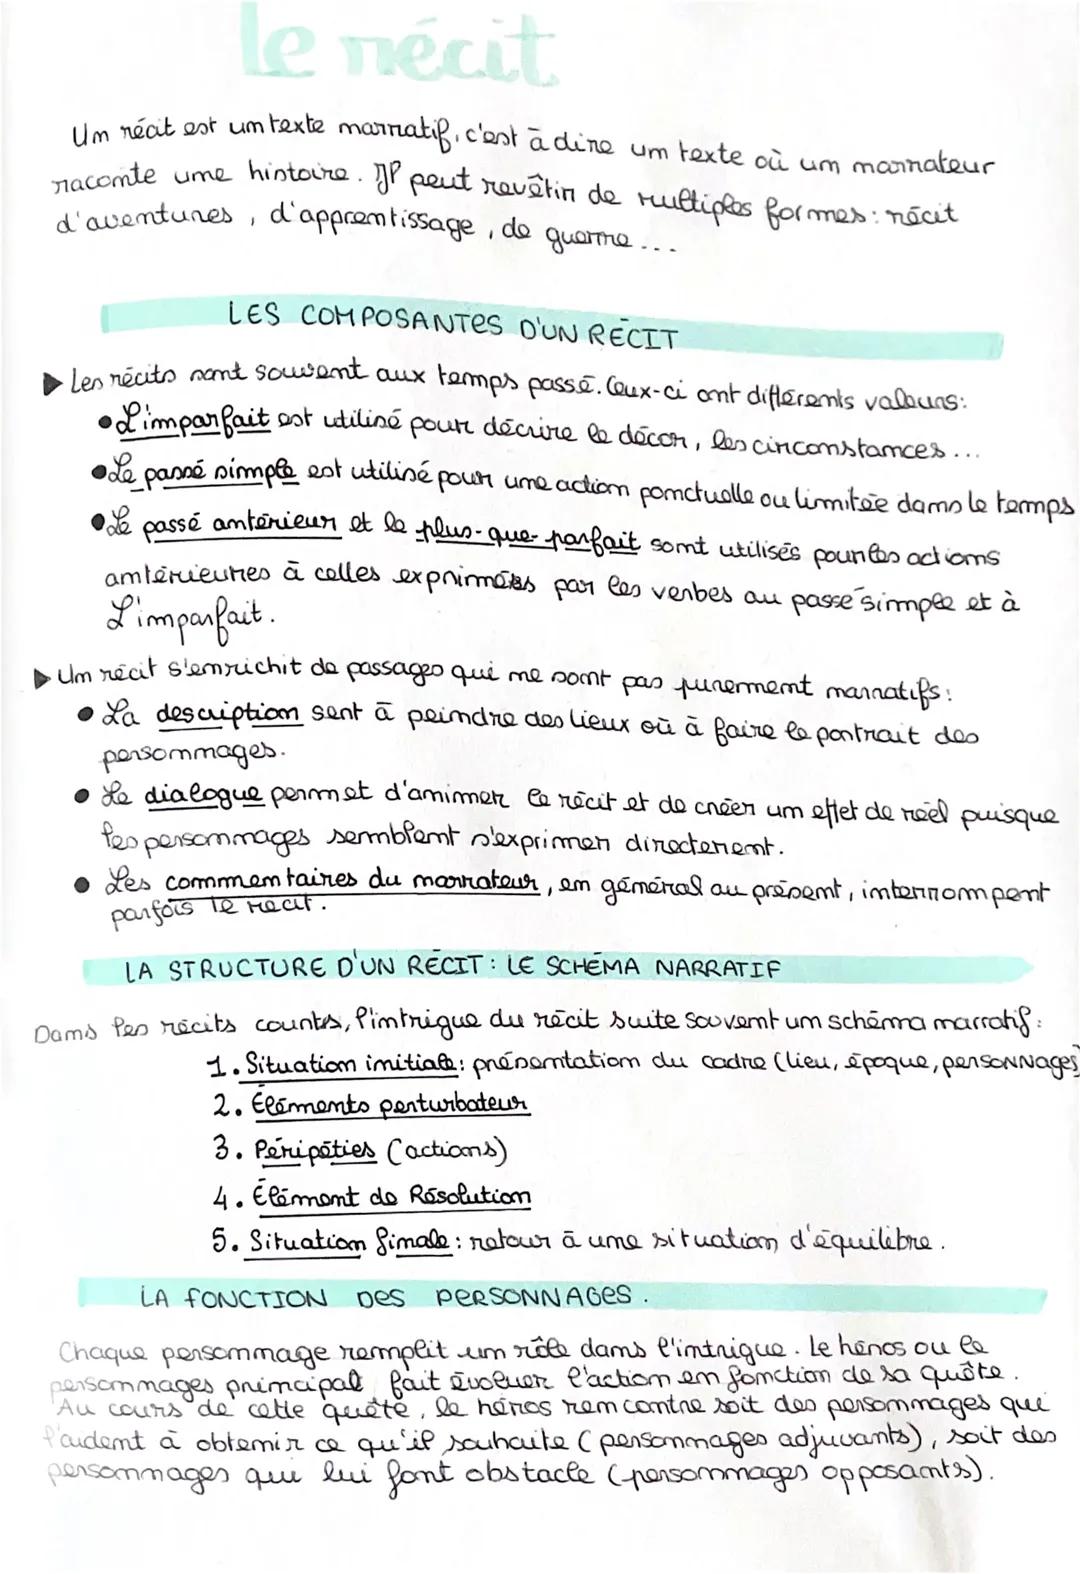 le récit
Un récit est un texte narratif, c'est à dire un texte où un narrateur
raconte une histoire. Il peut revêtir de multiples formes : récit
d'aventures, d'apprentissage, de guerre...
LES COMPOSANTES D'UN RÉCIT
▶ Les récits sont souvent aux temps passé. Ceux-ci ont différents valeurs:
• L'imparfait est utilisé pour décrire le décor, les circonstances...
• Le passé simple est utilisé pour une action ponctuelle ou limitée dans le temps
• Le passé antérieur et le plus-que-parfait sont utilisés pour les actions
antérieures à celles exprimées par les verbes au passé simple et à
L'imparfait.
▶ Un récit s'enrichit de passages qui ne sont pas purement narratifs:
• La description sert à peindre des lieux où à faire le portrait des
personnages.
• Le dialogue permet d'animer le récit et de créer un effet de réel puisque
les personnages semblent s'exprimer directement.
• Les commentaires du narrateur, en général au présent, interrompent
parfois le récit.
LA STRUCTURE D'UN RÉCIT : LE SCHÉMA NARRATIF
Dans les récits counts, l'intrigue du récit suite souvent un schéma narratif:
1. Situation initiale: présentation du cadre (lieu, époque, personnages)
2. Éléments perturbateur
3. Péripéties (actions)
4. Élément de Résolution
5. Situation finale: retour à une situation d'équilibre.
LA FONCTION DES PERSONNAGES.
Chaque personnage remplit un rôle dans l'intrigue. Le héros ou le
personnages principal fait évoluer l'action en fonction de sa quête.
Au cours de cette quête, le héros rencontre soit des personnages qui
l'aident à obtenir ce qu'il souhaite (personnages adjuvants), soit des
personnages qui lui font obstacle (personnages opposants).